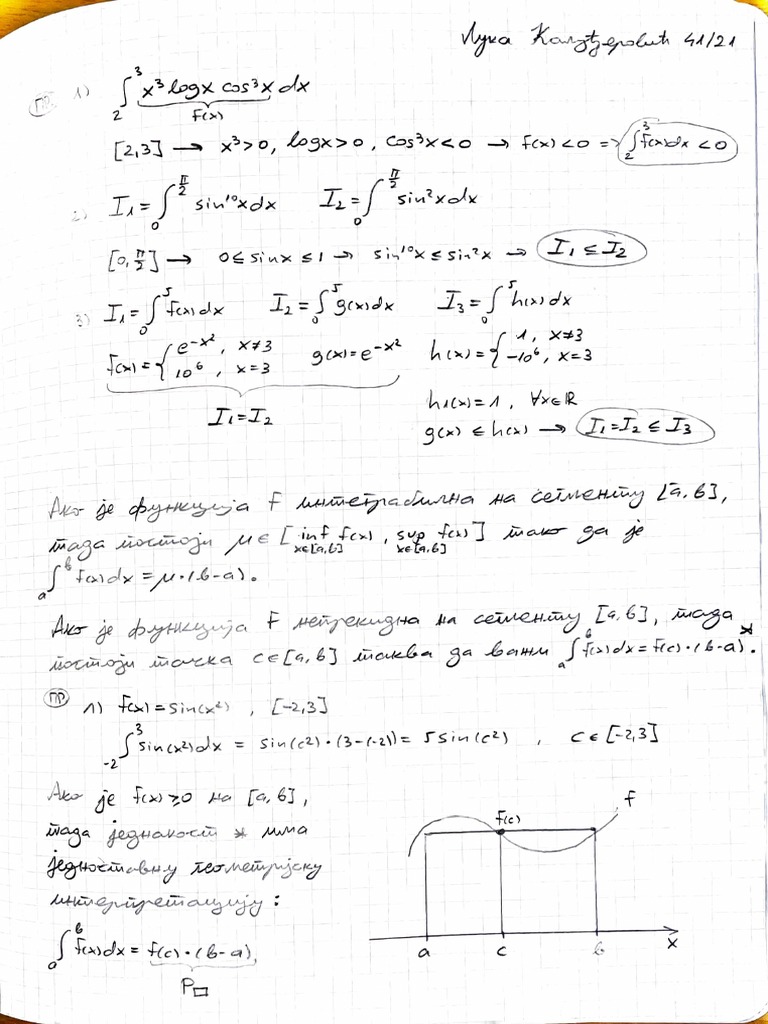 Лука 41/21
ПР. 1) ∫₂³ x³ logx cos³x dx
f(x)
[2,3] → x³>0, logx>0, cos³x<0 → f(x)<0 => ∫₂³ f(x)dx < 0
2) I₁ = ∫₀^(π/2) sin¹⁰x dx I₂ = ∫₀^(π/2) sin²x dx
[0, π/2] → 0 ≤ sinx ≤ 1 → sin¹⁰x ≤ sin²x → I₁ ≤ I₂
3) I₁ = ∫₀⁵ f(x)dx I₂ = ∫₀⁵ g(x)dx I₃ = ∫₀⁵ h(x)dx
f(x) = { e^(-x²), x≠3 10⁶, x=3 g(x) = e^(-x²) h(x) = { 1, x≠3 -10⁶, x=3
I₁ = I₂
h₁(x) = 1, ∀x∈ℝ
g(x) ≤ h(x) → I₁ = I₂ ≤ I₃
Ако је функција f интеграбилна на сегменту [a, b],
тада постоји μ ∈ [inf f(x) x∈[a,b], sup f(x) x∈[a,b]] тако да је
∫ₐᵇ f(x)dx = μ·(b-a).
Ако је функција f непрекидна на сегменту [a, b], тада
постоји тачка c∈[a, b] таква да важи ∫ₐᵇ f(x)dx = f(c)·(b-a)*.
ПР 1) f(x) = sin(x²), [-2,3]
∫₋₂³ sin(x²)dx = sin(c²)·(3-(-2)) = 5sin(c²), c∈[-2,3]
Ако је f(x) ≥ 0 на [a, b],
тада једнакост * има
једноставну геометријску
интерпретацију:
∫ₐᵇ f(x)dx = f(c)·(b-a),
P□
f(c) f
a c b x